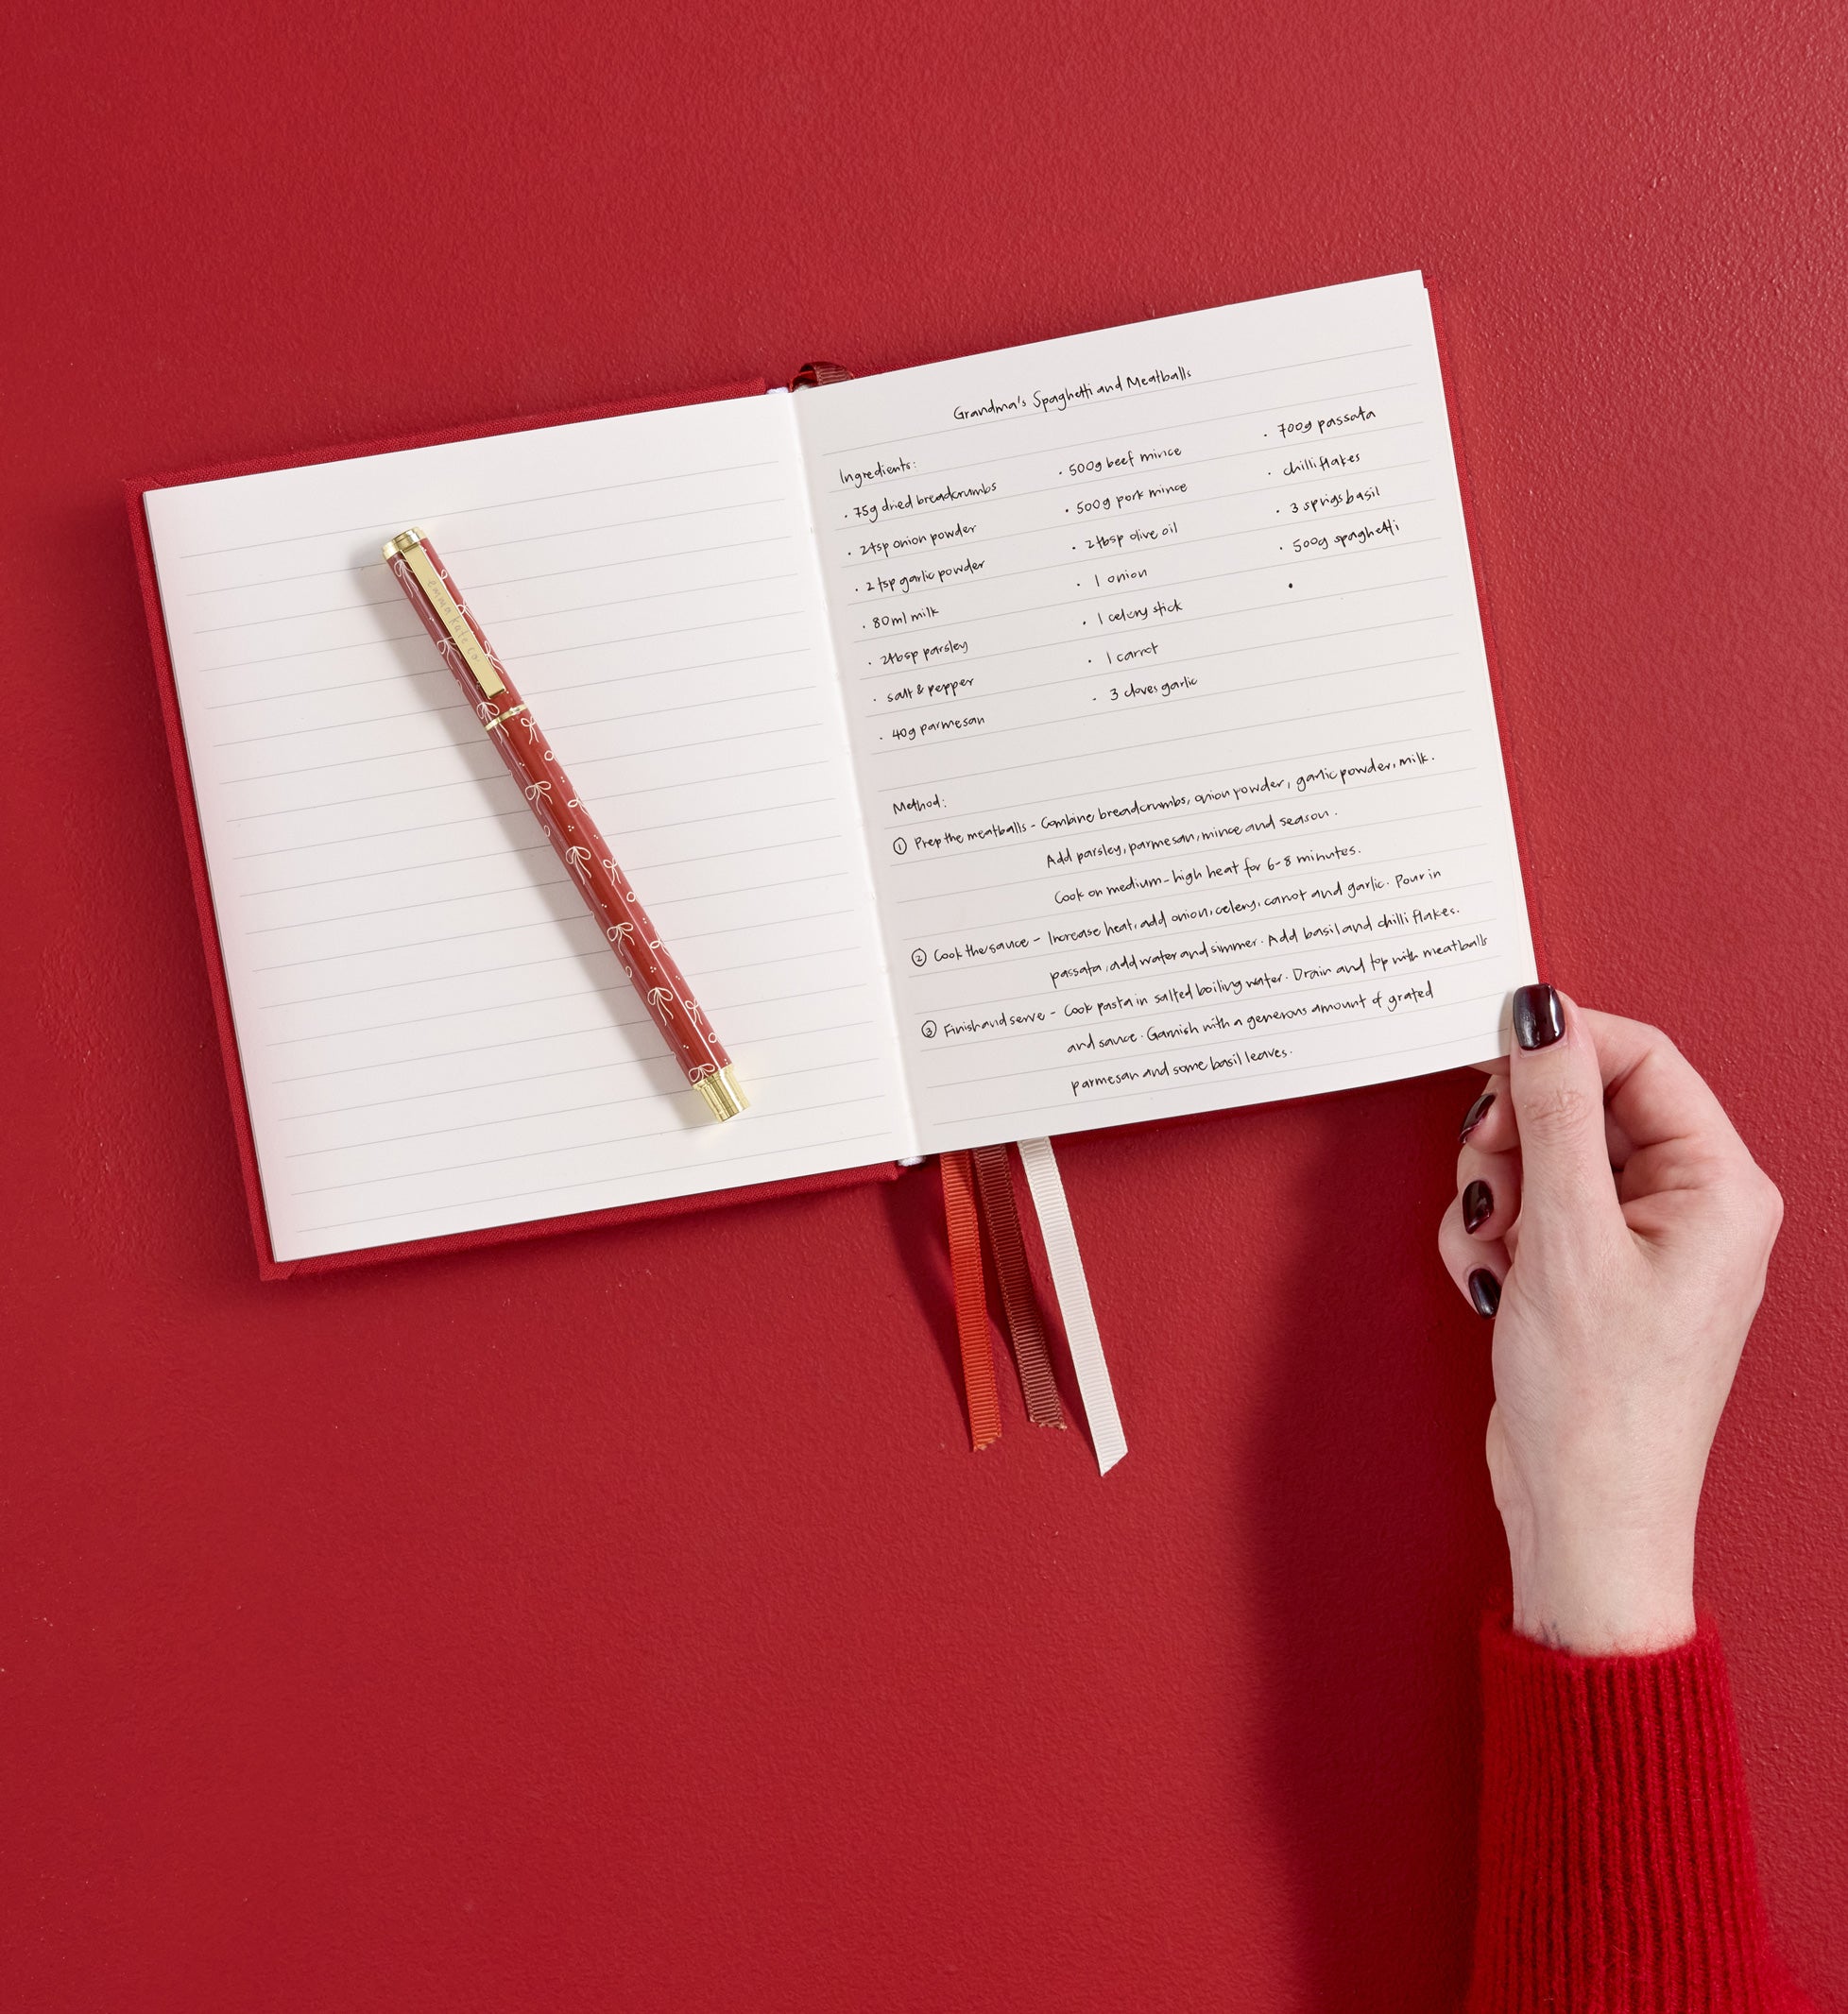 emma kate co.
Grandma's Spaghetti and Meatballs
Ingredients:
· 75g dried breadcrumbs
· 2tsp onion powder
· 2tsp garlic powder
· 80ml milk
· 2tbsp parsley
· salt & pepper
· 40g parmesan
· 500g beef mince
· 500g pork mince
· 2tbsp olive oil
· 1 onion
· 1 celery stick
· 1 carrot
· 3 cloves garlic
· 700g passata
· chilli flakes
· 3 sprigs basil
· 500g spaghetti
·
Method:
① Prep the meatballs - Combine breadcrumbs, onion powder, garlic powder, milk.
Add parsley, parmesan, mince and season.
Cook on medium-high heat for 6-8 minutes.
② Cook the sauce - Increase heat, add onion, celery, carrot and garlic. Pour in
passata, add water and simmer. Add basil and chilli flakes.
③ Finish and serve - Cook pasta in salted boiling water. Drain and top with meatballs
and sauce. Garnish with a generous amount of grated
parmesan and some basil leaves.